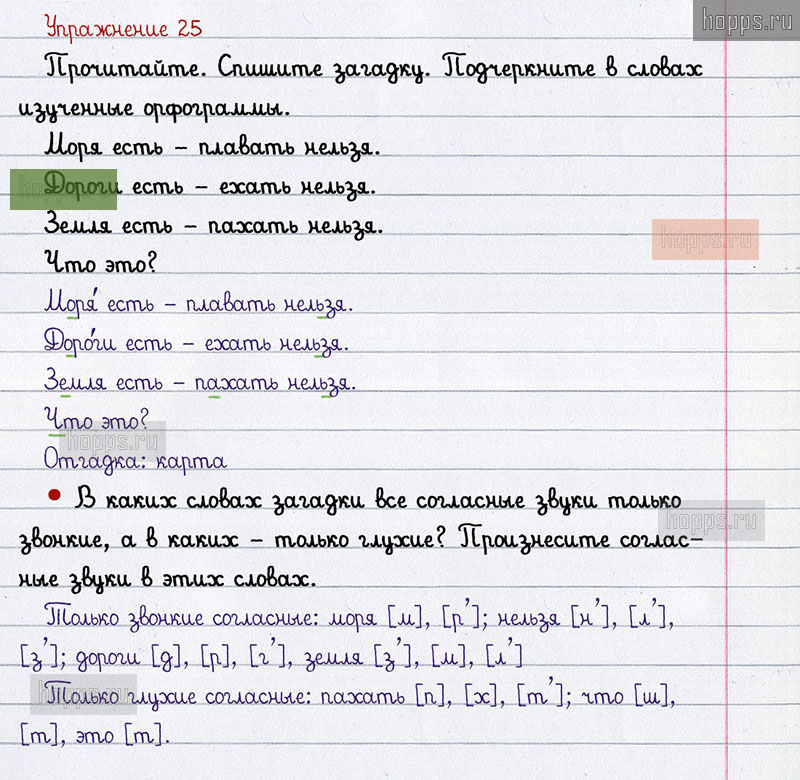 hopps.ru
Упражнение 25
Прочитайте. Спишите загадку. Подчеркните в словах
изученные орфограммы.
Моря есть – плавать нельзя.
Дороги есть – ехать нельзя.
Земля есть – пахать нельзя.
hopps.ru
Что это?
Моря́ есть – плавать нельзя.
Доро́ги есть – ехать нельзя.
Земля есть – пахать нельзя.
Что это?
hopps.ru
Отгадка: карта
• В каких словах загадки все согласные звуки только
hopps.ru
звонкие, а в каких – только глухие? Произнесите соглас–
ные звуки в этих словах.
Только звонкие согласные: моря [м], [р’]; нельзя [н’], [л’],
[з’]; дороги [д], [р], [г’], земля [з’], [м], [л’]
Только глухие согласные: пахать [п], [х], [т’]; что [ш],
[т], это [т].